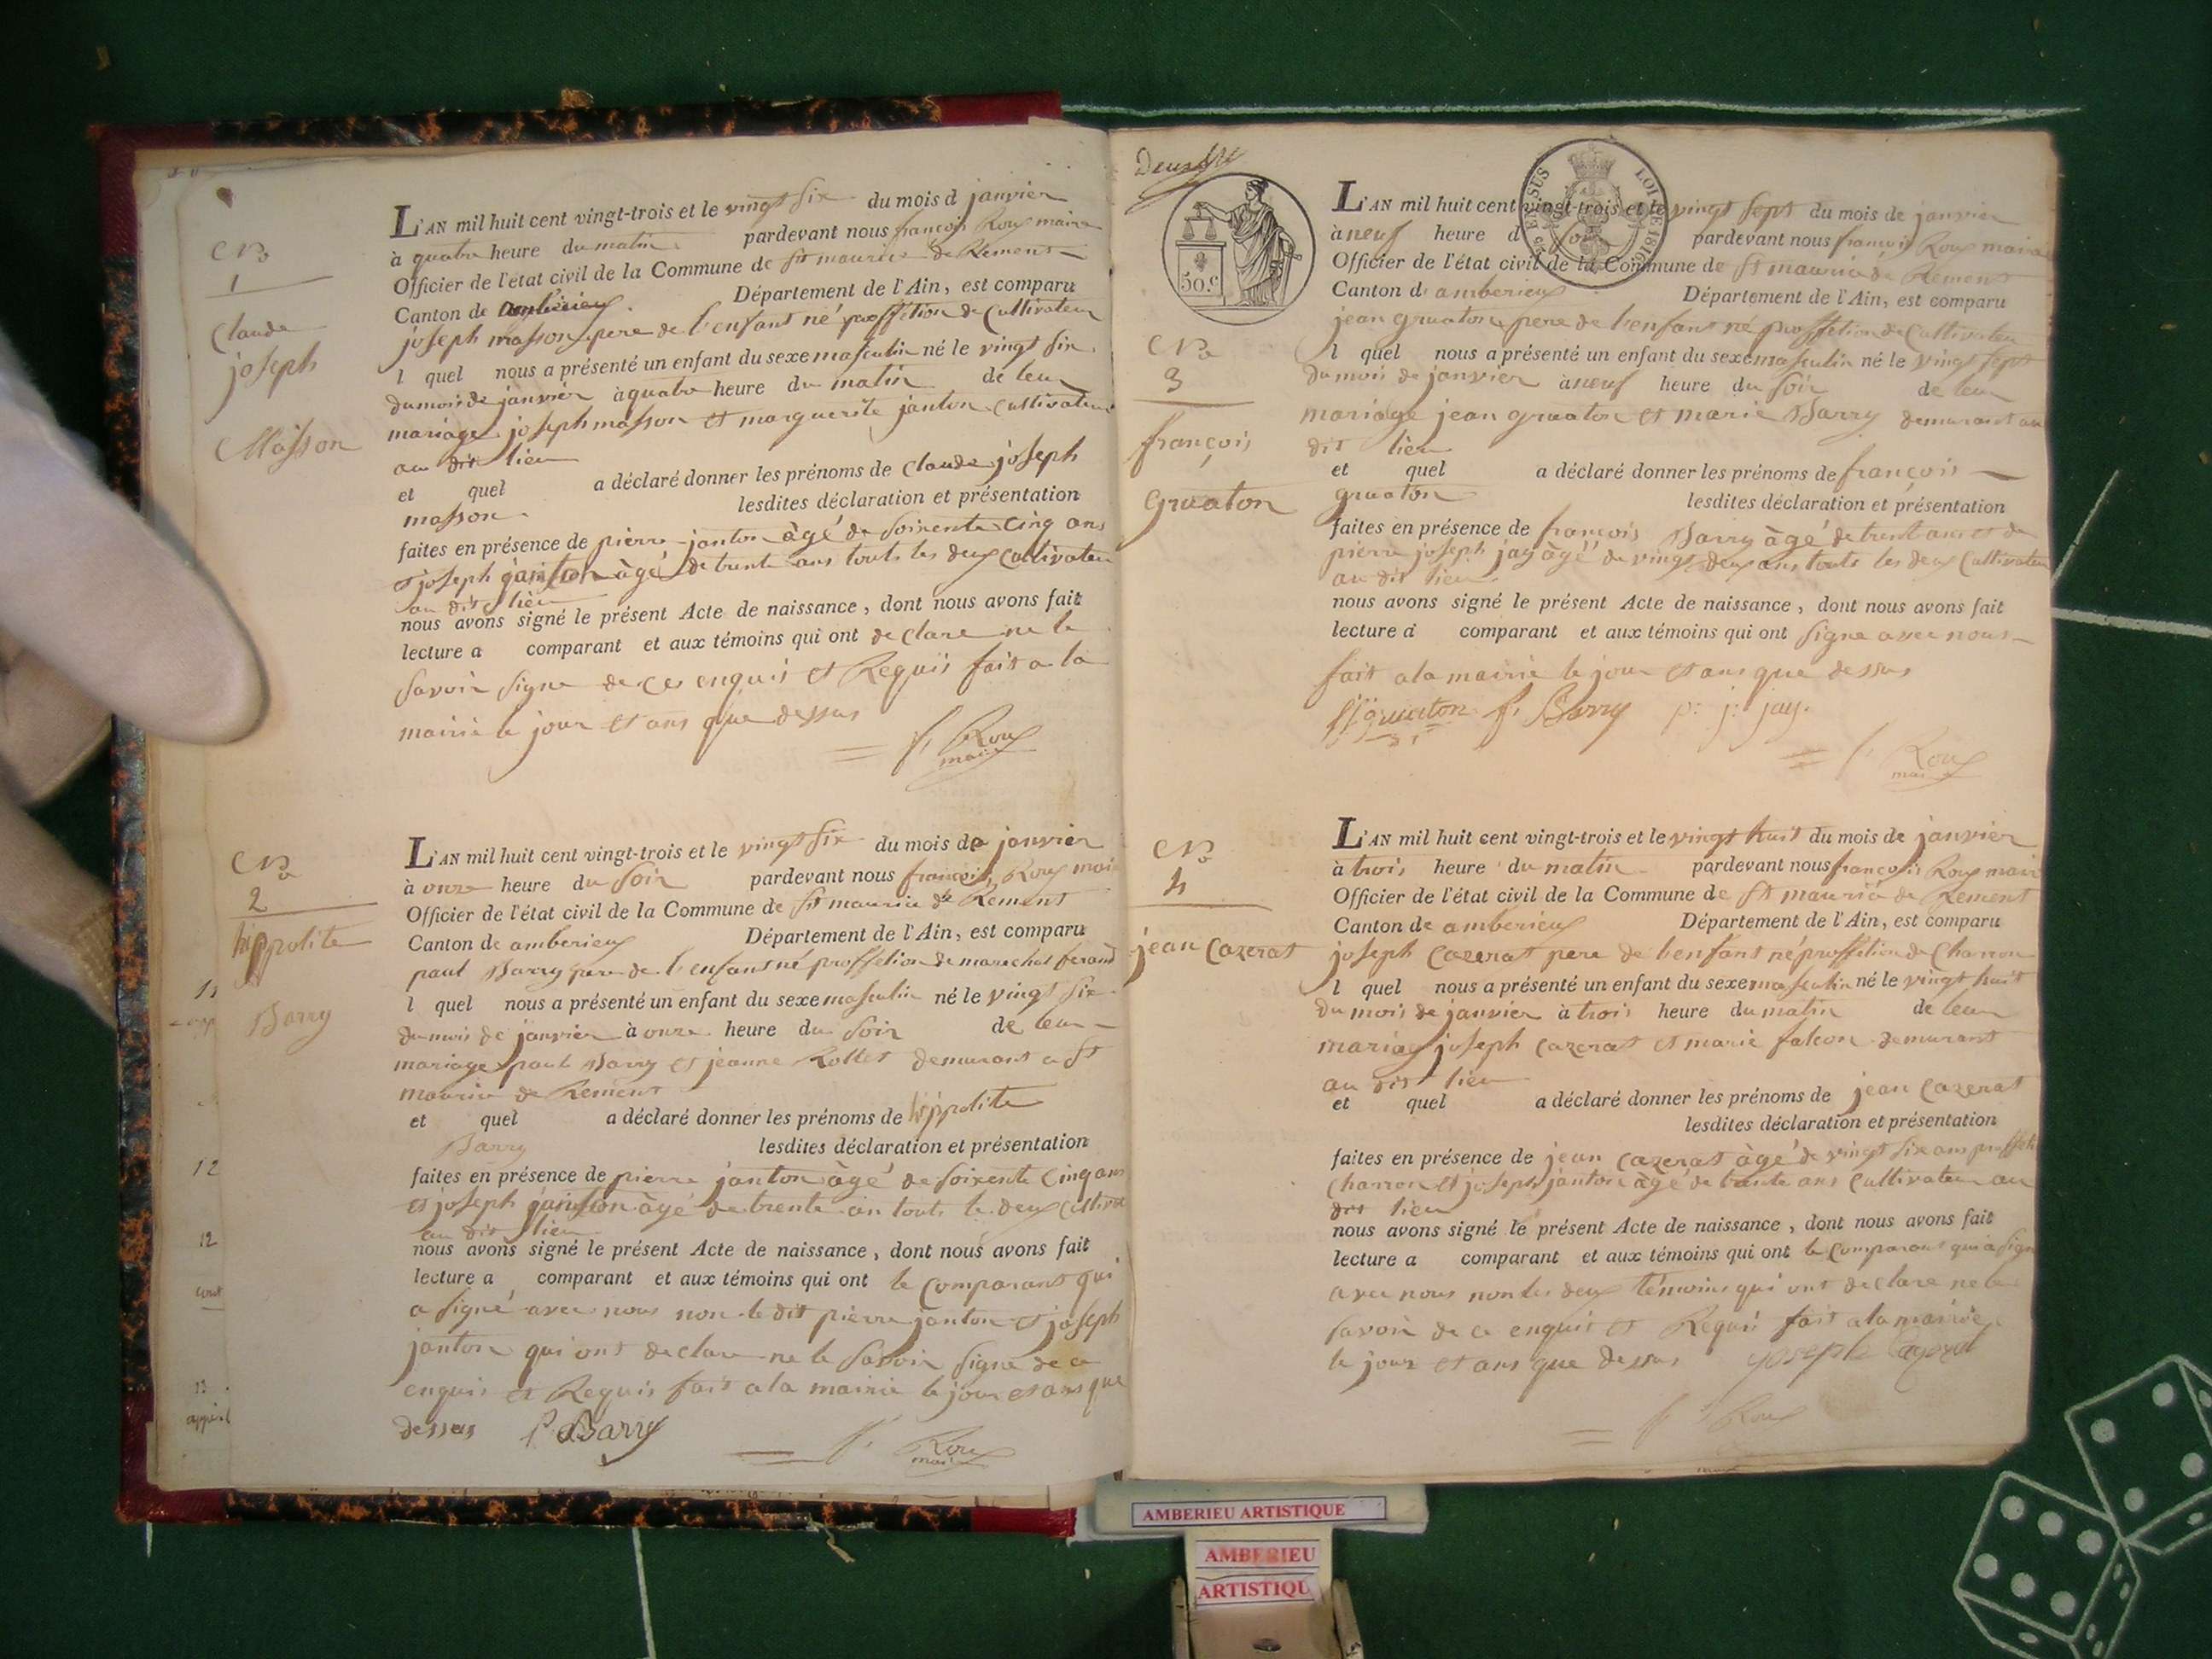 No
1
Claude
joseph
Masson
L'AN mil huit cent vingt-trois et le vingt six du mois d janvier
à quatre heure du matin pardevant nous françois Roux maire
Officier de l'état civil de la Commune de St maurice de Remens
Canton de amberieux Département de l'Ain, est comparu
joseph masson pere de l'enfant né proffétion de Cultivateur
l quel nous a présenté un enfant du sexe masculin né le vingt six
du mois de janvier à quatre heure du matin de leur
mariage joseph masson et marguerite janton Cultivateur
au dit lieu
et quel a déclaré donner les prénoms de Claude joseph
masson lesdites déclaration et présentation
faites en présence de pierre janton âgé de soixente Cinq ans
et joseph janton âgé de trente ans touts les deux Cultivateur
au dit lieu
nous avons signé le présent Acte de naissance, dont nous avons fait
lecture a comparant et aux témoins qui ont declare ne le
savoir signe de ce enquis et Requis fait a la
mairie le jour et ans que dessus
f. Roux
maire
No
2
hippolite
Barry
L'AN mil huit cent vingt-trois et le vingt six du mois de janvier
à onze heure du soir pardevant nous françois Roux mair
Officier de l'état civil de la Commune de St maurice de Remens
Canton de amberieux Département de l'Ain, est comparu
paul Barry pere de l'enfant né proffétion de marechal ferand
l quel nous a présenté un enfant du sexe masculin né le vingt six
du mois de janvier à onze heure du soir de leur
mariage paul Barry et jeanne Rollet demurant a St
maurice de Remens
et quel a déclaré donner les prénoms de hippolite
Barry lesdites déclaration et présentation
faites en présence de pierre janton âgé de soixente Cinq ans
et joseph janton âgé de trente an touts le deux Cultivat
au dit lieu
nous avons signé le présent Acte de naissance, dont nous avons fait
lecture a comparant et aux témoins qui ont le Comparant qui
a signé avec nous non le dit pierre janton et joseph
janton qui ont declare ne le savoir signe de ce
enquis et Requis fait a la mairie le jour et ans que
dessus P Barry
f. Roux
maire
12
12
13
Deux
50.c
LOI DE 1816
L'AN mil huit cent vingt-trois et le vingt sept du mois de janvier
à neuf heure d soir pardevant nous françois Roux maire
Officier de l'état civil de la Commune de St maurice de Remens
Canton d amberieux Département de l'Ain, est comparu
jean gruaton pere de l'enfant né proffétion de Cultivateu
l quel nous a présenté un enfant du sexe masculin né le vingt sept
du mois de janvier à neuf heure du soir de leur
mariage jean gruaton et marie Barry demurant au
dit lieu
et quel a déclaré donner les prénoms de françois
gruaton lesdites déclaration et présentation
faites en présence de françois Barry âgé de trent ans et de
pierre joseph jay âgé de vingt deux ans touts les deux Cultivateu
au dit lieu
nous avons signé le présent Acte de naissance, dont nous avons fait
lecture a comparant et aux témoins qui ont signe avec nous
fait a la mairie le jour et ans que dessus
gruaton f. Barry p: j: jay.
f. Roux
maire
No
3
françois
gruaton
L'AN mil huit cent vingt-trois et le vingt huit du mois de janvier
à trois heure du matin pardevant nous françois Roux mair
Officier de l'état civil de la Commune de St maurice de Remens
Canton de amberieux Département de l'Ain, est comparu
joseph Cazerat pere de l'enfant né proffétion de Charron
l quel nous a présenté un enfant du sexe masculin né le vingt huit
du mois de janvier à trois heure du matin de leur
mariage joseph Cazerat et marie falcon demurant
au dit lieu
et quel a déclaré donner les prénoms de jean Cazerat
lesdites déclaration et présentation
faites en présence de jean Cazerat âgé de vingt six ans
Charron et joseph janton âgé de trante ans Cultivateur au
dit lieu
nous avons signé le présent Acte de naissance, dont nous avons fait
lecture a comparant et aux témoins qui ont le Comparant qui a sign
avec nous non les deux témoins qui ont declare ne le
savoir de ce enquis et Requis fait a la mairie
le jour et ans que dessus joseph Cazerat
f. Roux
No
4
jean Cazerat
AMBERIEU ARTISTIQUE
AMBERIEU
ARTISTIQU